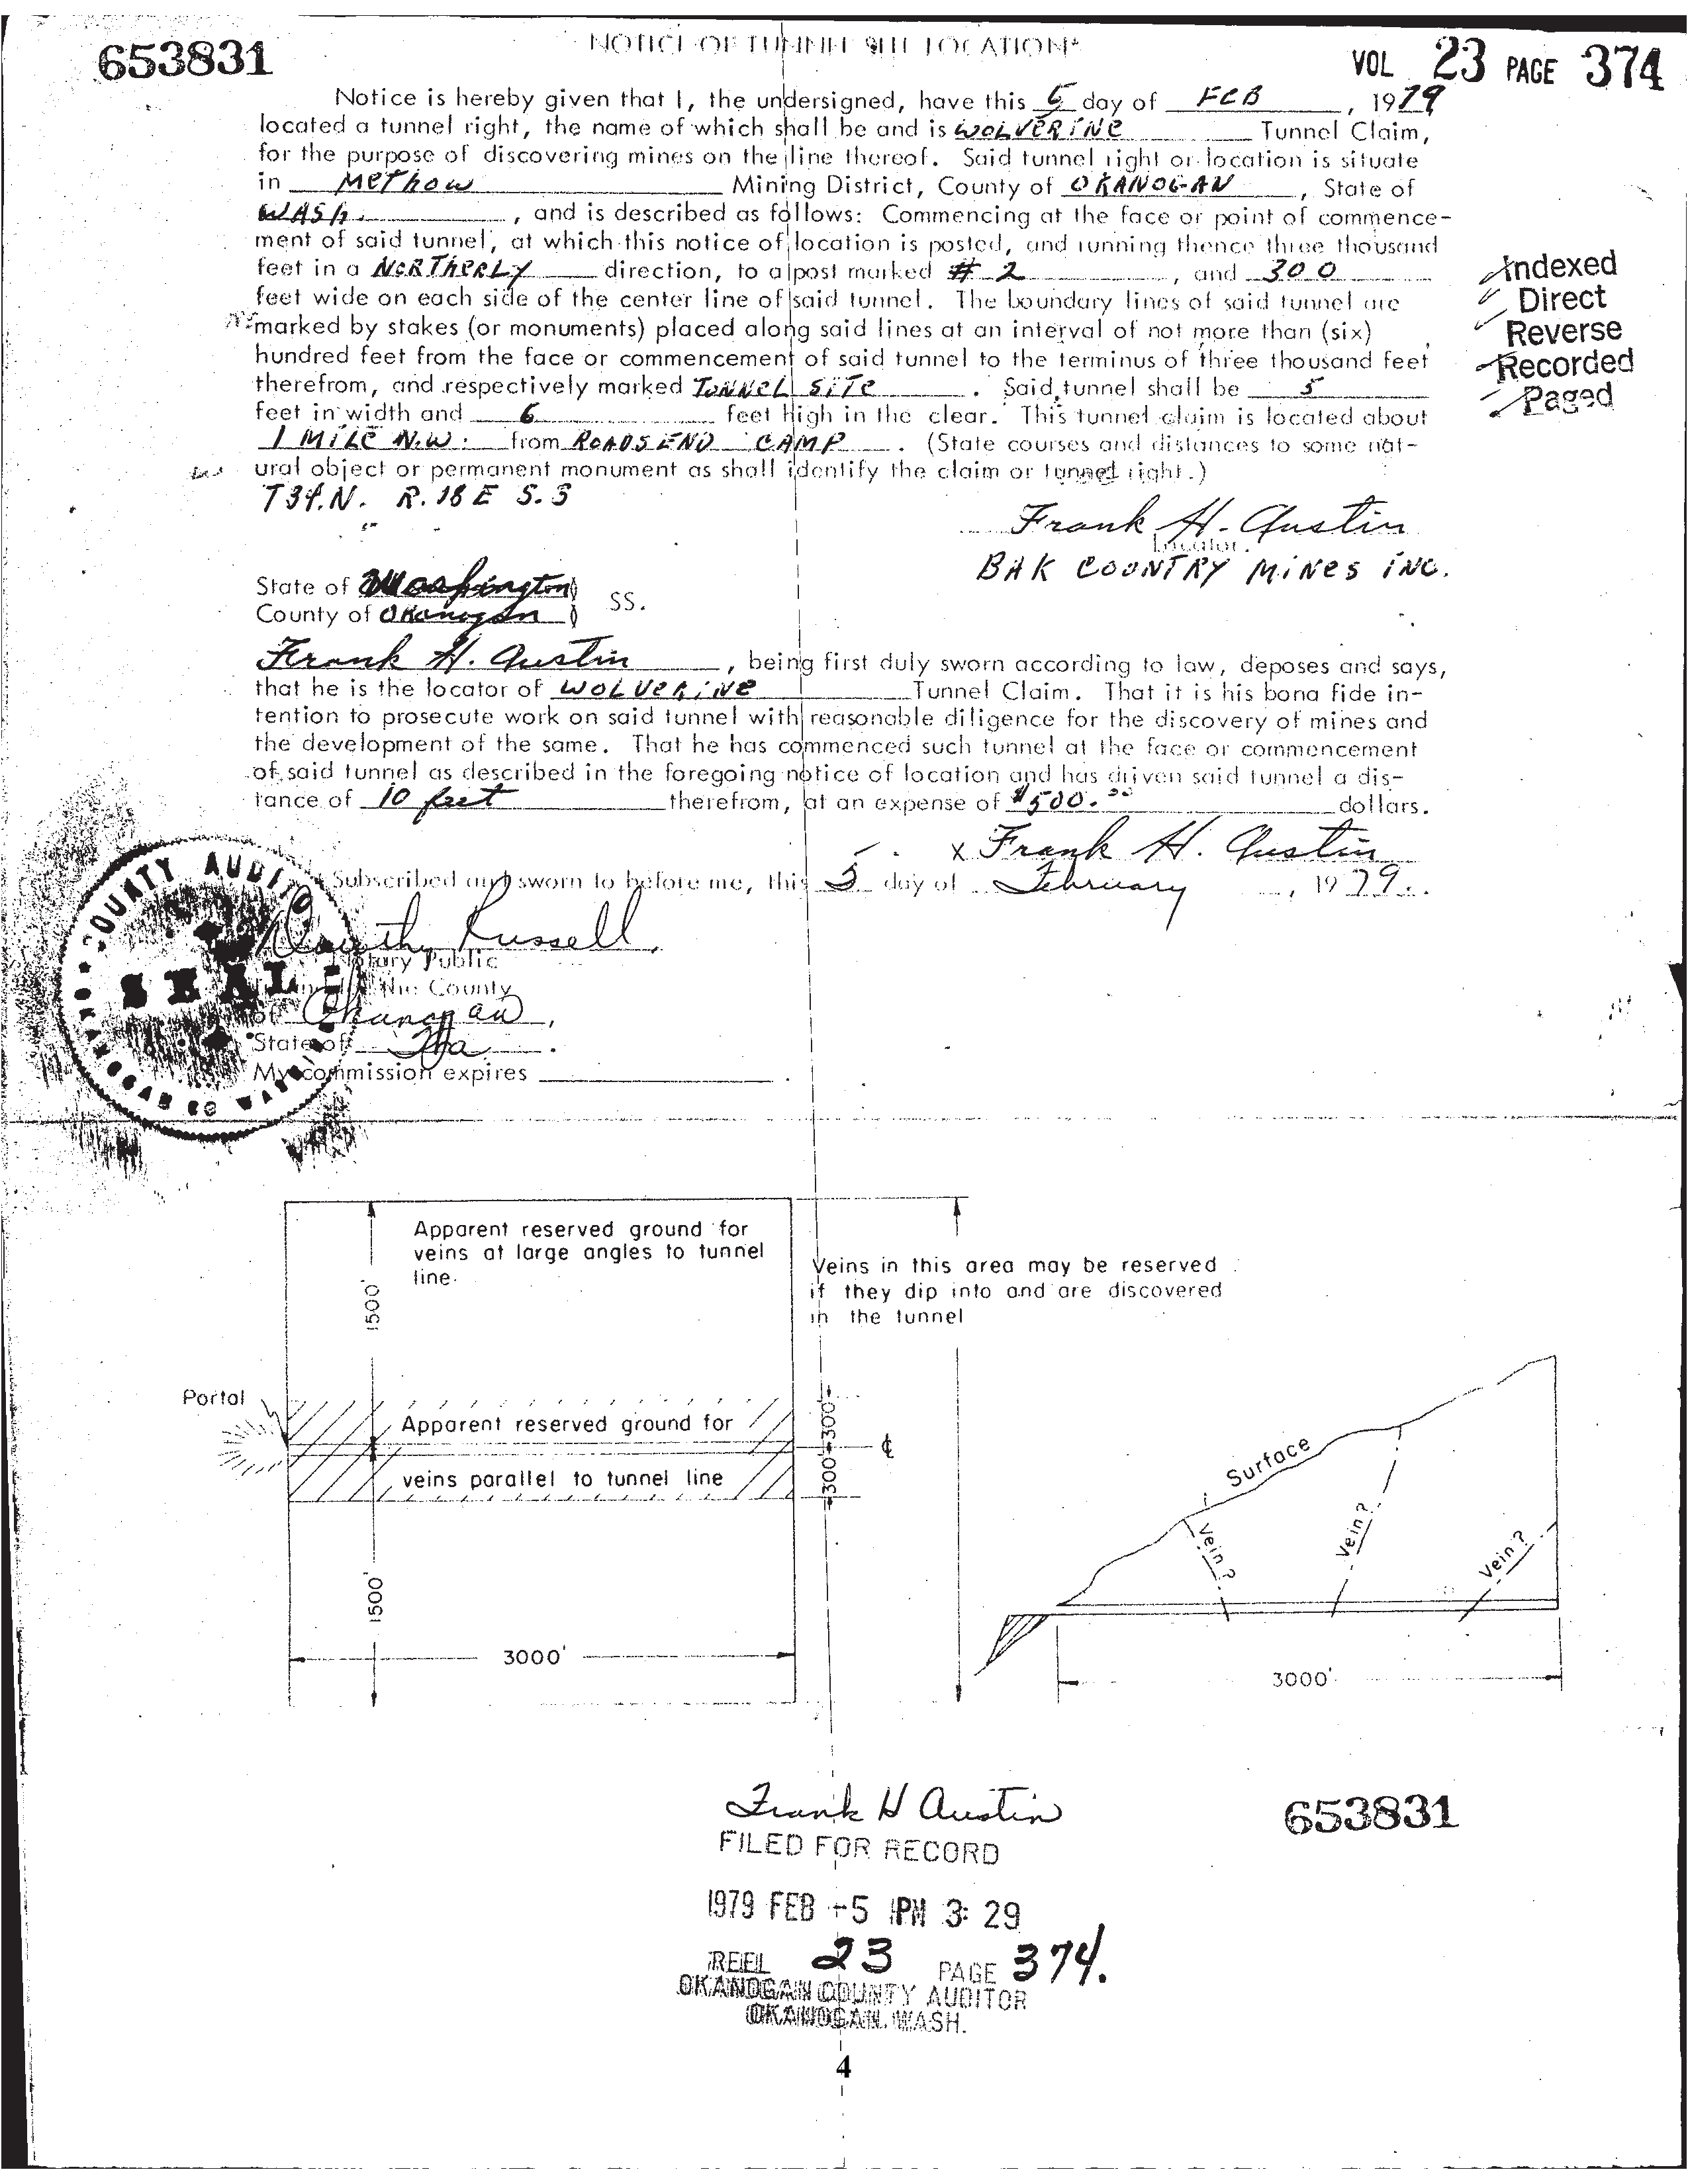 653831
NOTICE OF TUNNEL SITE LOCATION*
VOL 23 PAGE 374
Notice is hereby given that I, the undersigned, have this 5 day of FEB, 1979
located a tunnel right, the name of which shall be and is WOLVERINE Tunnel Claim,
for the purpose of discovering mines on the line thereof. Said tunnel right or location is situate
in METHOW Mining District, County of OKANOGAN, State of
WASH., and is described as follows: Commencing at the face or point of commence-
ment of said tunnel, at which this notice of location is posted, and running thence three thousand
feet in a NORTHERLY direction, to a post marked # 2, and 300
feet wide on each side of the center line of said tunnel. The boundary lines of said tunnel are
marked by stakes (or monuments) placed along said lines at an interval of not more than (six)
hundred feet from the face or commencement of said tunnel to the terminus of three thousand feet
therefrom, and respectively marked TUNNEL SITE. Said tunnel shall be 5
feet in width and 6 feet high in the clear. This tunnel claim is located about
1 MILE N.W. from ROADS END CAMP. (State courses and distances to some nat-
ural object or permanent monument as shall identify the claim or tunnel right.)
R. 18 E S.
Indexed
Direct
Reverse
Recorded
Paged
Frank H. Austin
Locator.
BAK COUNTRY MINES INC.
State of Washington)
County of Okanogan ) SS.
Frank H. Austin, being first duly sworn according to law, deposes and says,
that he is the locator of WOLVERINE Tunnel Claim. That it is his bona fide in-
tention to prosecute work on said tunnel with reasonable diligence for the discovery of mines and
the development of the same. That he has commenced such tunnel at the face or commencement
of said tunnel as described in the foregoing notice of location and has driven said tunnel a dis-
tance of 10 feet therefrom, at an expense of $500.00 dollars.
x Frank H. Austin
Subscribed and sworn to before me, this 5 day of February, 1979.
Dorothy Russell,
Notary Public
the County
of Okanogan,
State of Wa.
My commission expires
COUNTY AUDITOR
SEAL
OKANOGAN CO. WASH.
Apparent reserved ground for
veins at large angles to tunnel
line.
1500'
Veins in this area may be reserved
if they dip into and are discovered
in the tunnel
Portal
Apparent reserved ground for
veins parallel to tunnel line
300' 300'
℄
1500'
3000'
Surface
Vein?
Vein?
Vein?
3000'
Frank H Austin
FILED FOR RECORD
653831
1979 FEB -5 PM 3: 29
REEL 23 PAGE 374.
OKANOGAN COUNTY AUDITOR
OKANOGAN, WASH.
4